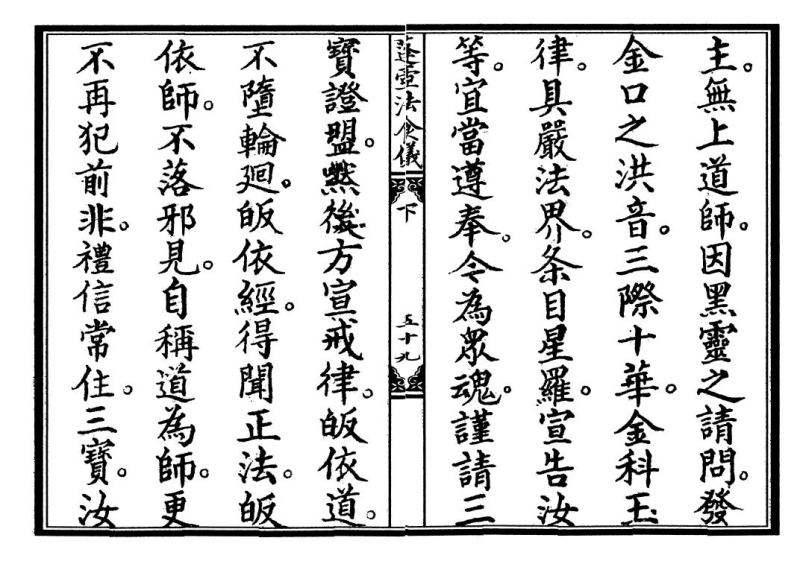 主。無上道師。因黑靈之請問。發
金口之洪音。三際十華。金科玉
律。具嚴法界。条目星羅。宣告汝
等。宜當遵奉。今為眾魂。謹請三
蓬壼法食儀 下 五十九
寶證盟。然後方宣戒律。皈依道。
不墮輪廻。皈依經。得聞正法。皈
依師。不落邪見。自稱道為師。更
不再犯前非。禮信常住。三寶。汝